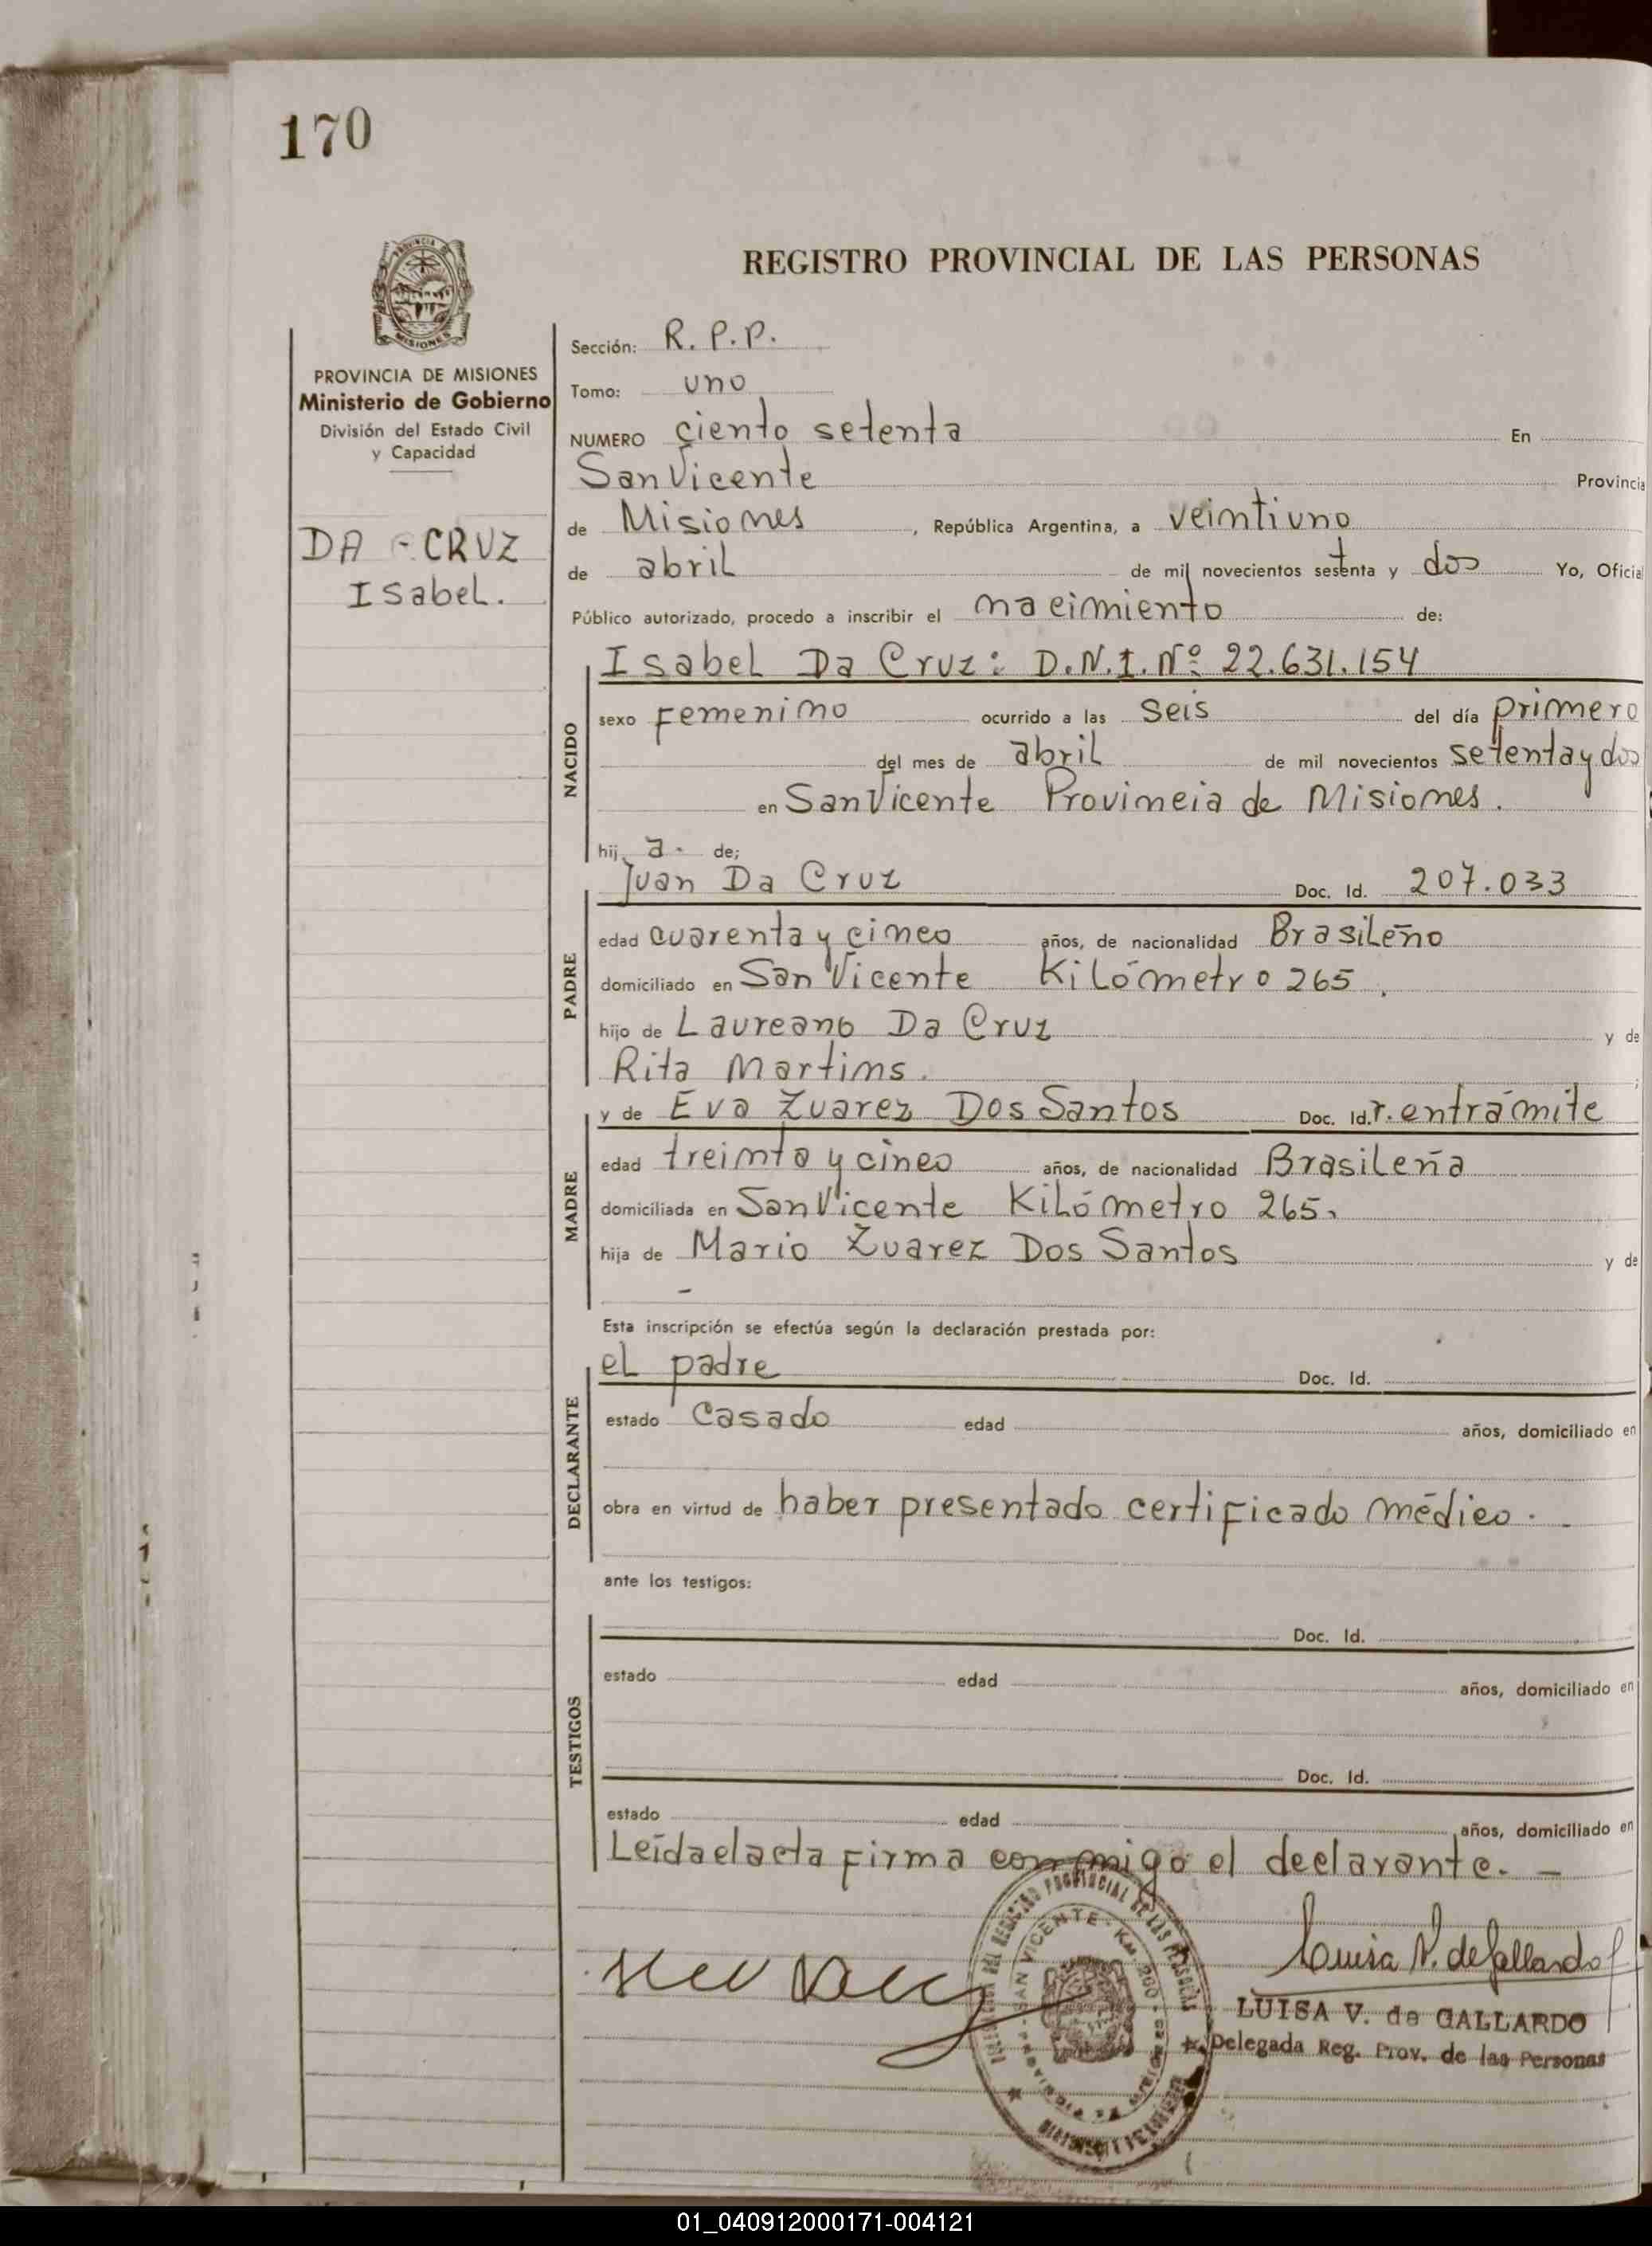 170
REGISTRO PROVINCIAL DE LAS PERSONAS
MISIONES
PROVINCIA DE MISIONES
Ministerio de Gobierno
División del Estado Civil
y Capacidad
DA CRUZ
Isabel.
Sección: R. P. P.
Tomo: uno
NUMERO ciento setenta En
San Vicente Provincia
de Misiones, República Argentina, a veintiuno
de abril de mil novecientos setenta y dos Yo, Oficial
Público autorizado, procedo a inscribir el nacimiento de:
NACIDO
Isabel Da Cruz: D.N.I. Nº 22.631.154
sexo Femenino ocurrido a las seis del día primero
del mes de abril de mil novecientos setenta y dos
en San Vicente Provincia de Misiones.
hij a. de;
PADRE
Juan Da Cruz Doc. Id. 207.033
edad cuarenta y cinco años, de nacionalidad Brasileño
domiciliado en San Vicente Kilómetro 265.
hijo de Laureano Da Cruz y de
Rita Martins.
MADRE
y de Eva Zuarez Dos Santos Doc. Id. r. entrámite
edad treinta y cinco años, de nacionalidad Brasileña
domiciliada en San Vicente Kilómetro 265.
hija de Mario Zuarez Dos Santos y de
-
Esta inscripción se efectúa según la declaración prestada por:
DECLARANTE
el padre Doc. Id.
estado Casado edad años, domiciliado en
obra en virtud de haber presentado certificado médico. -
ante los testigos:
TESTIGOS
Doc. Id.
estado edad años, domiciliado en
Doc. Id.
estado edad años, domiciliado en
Leída el acta firma conmigo el declarante. -
REGISTRO PROVINCIAL DE LAS PERSONAS
SAN VICENTE - KM. 260
Luisa V. de Gallardo
LUISA V. de GALLARDO
Delegada Reg. Prov. de las Personas
01_040912000171-004121